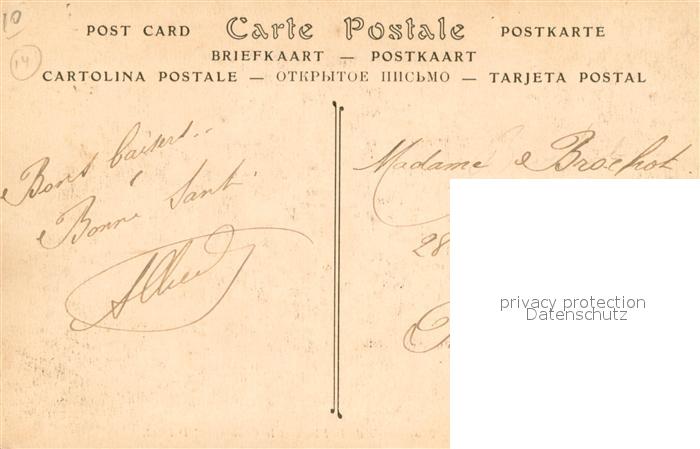 10
14
POST CARD Carte Postale POSTKARTE
BRIEFKAART — POSTKAART
CARTOLINA POSTALE — ОТКРЫТОЕ ПИСЬМО — TARJETA POSTAL
Bons baisers..
Bonne Santé
Madame Brochot
28
privacy protection
Datenschutz